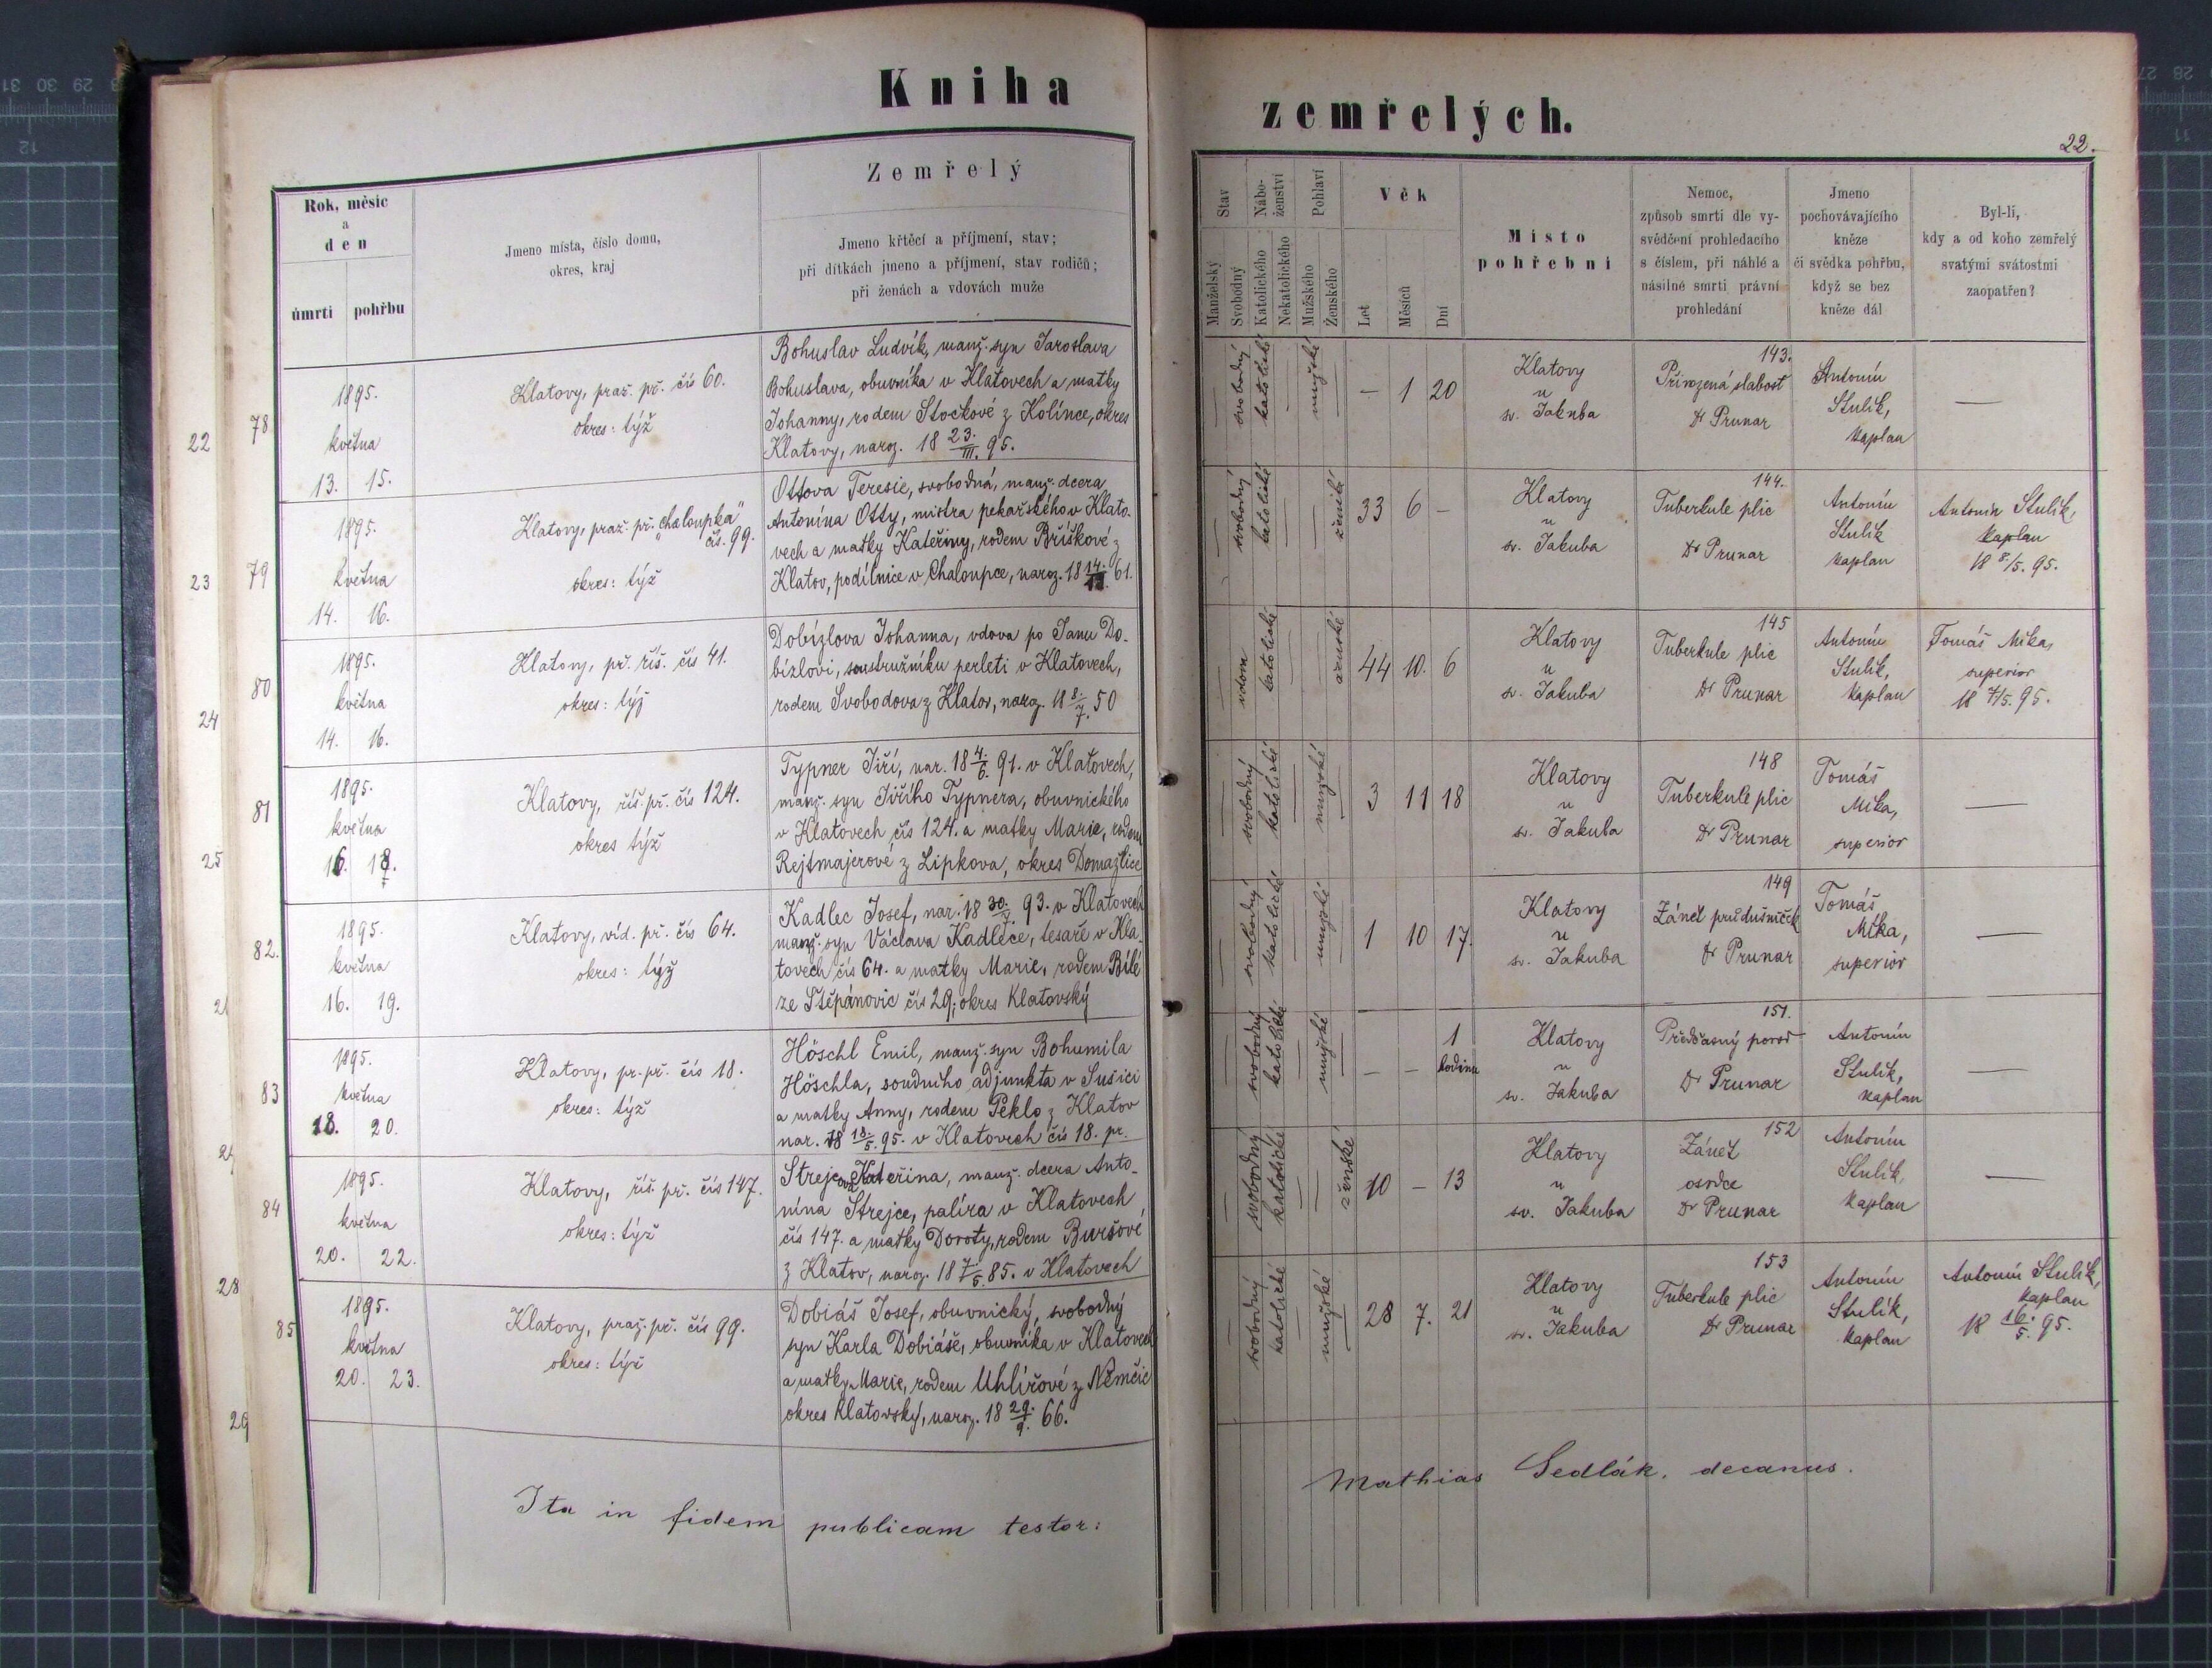 Kniha
zemřelých.
22.
Rok, měsíc
a
den
úmrtí pohřbu
Jmeno místa, číslo domu,
okres, kraj
Zemřelý
Jmeno křtěcí a příjmení, stav;
při dítkách jmeno a příjmení, stav rodičů;
při ženách a vdovách muže
Stav
Manželský
Svobodný
Nábo-
ženství
Katolického
Nekatolického
Pohlaví
Mužského
Ženského
Věk
Let
Měsíců
Dní
Místo
pohřební
Nemoc,
způsob smrti dle vy-
svědčení prohledacího
s číslem, při náhlé a
násilné smrti právní
prohledání
Jmeno
pochovávajícího
kněze
či svědka pohřbu,
když se bez
kněze dál
Byl-li,
kdy a od koho zemřelý
svatými svátostmi
zaopatřen?
78
1895.
května
13. 15.
Klatovy, praž. př. čís 60.
okres: týž
Bohuslav Ludvík, manž. syn Jaroslava
Bohuslava, obuvníka v Klatovech a matky
Johanny, rodem Stočkové z Kolínce, okres
Klatovy, naroz. 18 23./III. 95.
svobodný
katolické
mužské
— 1 20
Klatovy
u
sv. Jakuba
143.
Přirozená slabost
Dr Prunar
Antonín
Stulík,
kaplan
—
79
1895.
května
14. 16.
Klatovy, praž. př. „Chaloupka"
čís. 99.
okres: týž
Ottova Teresie, svobodná, manž. dcera
Antonína Otty, mistra pekařského v Klato-
vech a matky Kateřiny, rodem Bříškové z
Klatov, podílnice v Chaloupce, naroz. 18 14. 61.
svobodný
katolické
ženské
33 6 —
Klatovy
u
sv. Jakuba
144.
Tuberkule plic
Dr Prunar
Antonín
Stulík
kaplan
Antonín Stulík,
kaplan
18 8/5. 95.
80
1895.
května
14. 16.
Klatovy, př. říš. čís 41.
okres: týž
Dobízlova Johanna, vdova po Janu Do-
bízlovi, soustružníku perleti v Klatovech,
rodem Svobodova z Klatov, naroz. 18 8./7. 50
vdova
katolické
ženské
44 10. 6
Klatovy
u
sv. Jakuba
145
Tuberkule plic
Dr Prunar
Antonín
Stulík,
kaplan
Tomáš Míka,
superior
18 /5. 95.
81
1895.
května
16. 18.
Klatovy, říš. př. čís 124.
okres týž
Typner Jiří, nar. 18 4./6. 91. v Klatovech,
manž. syn Jiřího Typnera, obuvnického
v Klatovech čís 124. a matky Marie, rodem
Rejtmajerové z Lipkova, okres Domažlice
svobodný
katolické
mužské
3 11 18
Klatovy
u
sv. Jakuba
148
Tuberkule plic
Dr Prunar
Tomáš
Míka,
superior
—
82.
1895.
května
16. 19.
Klatovy, víd. př. čís 64.
okres: týž
Kadlec Josef, nar. 18 30./7. 93. v Klatovech
manž. syn Václava Kadlece, tesaře v Kla-
tovech čís 64. a matky Marie, rodem Bílé
ze Štěpánovic čís 29, okres Klatovský
svobodný
katolické
mužské
1 10 17.
Klatovy
u
sv. Jakuba
149
Zánět průdušniček
Dr Prunar
Tomáš
Míka,
superior
—
83
1895.
května
18. 20.
Klatovy, pr. př. čís 18.
okres: týž
Höschl Emil, manž. syn Bohumila
Höschla, soudního adjunkta v Sušici
a matky Anny, rodem Peklo z Klatov
nar. 18 18./5. 95. v Klatovech čís 18. pr.
svobodný
katolické
mužské
— — 1
hodina
Klatovy
u
sv. Jakuba
151.
Předčasný porod
Dr Prunar
Antonín
Stulík,
kaplan
—
84
1895.
května
20. 22.
Klatovy, říš. př. čís 147.
okres: týž
Strejcova Kateřina, manž. dcera Anto-
nína Strejce, palíra v Klatovech
čís 147. a matky Doroty, rodem Buršové
z Klatov, naroz. 18 7./5. 85. v Klatovech
svobodný
katolické
ženské
10 — 13
Klatovy
u
sv. Jakuba
152
Zánět
osrdce
Dr Prunar
Antonín
Stulík,
kaplan
—
85
1895.
května
20. 23.
Klatovy, praž. př. čís 99.
okres: týž
Dobiáš Josef, obuvnický, svobodný
syn Karla Dobiáše, obuvníka v Klatovech
a matky Marie, rodem Uhlířové z Němčic
okres Klatovský, naroz. 18 29./9. 66.
svobodný
katolické
mužské
28 7. 21
Klatovy
u
sv. Jakuba
153
Tuberkule plic
Dr Prunar
Antonín
Stulík,
kaplan
Antonín Stulík,
kaplan
18 16./5. 95.
Ita in fidem publicam testor:
Mathias Sedlák, decanus.
22
23
24
25
28
29